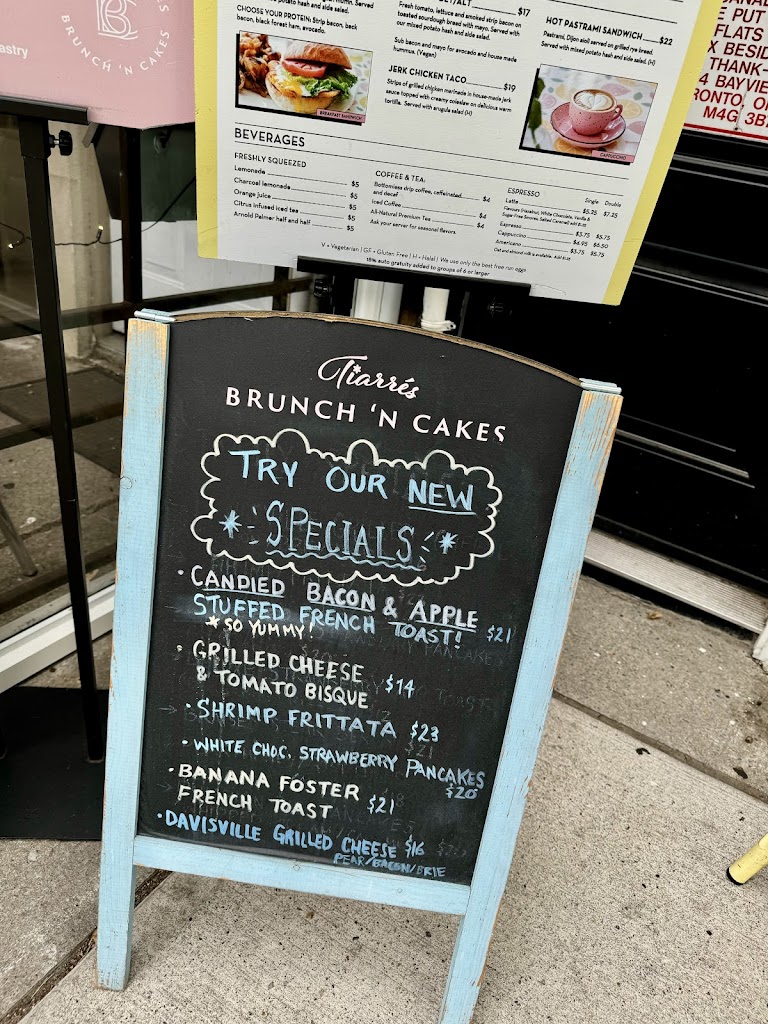 astry
BRUNCH 'N CAKES
CHOOSE YOUR PROTEIN: Strip bacon, back
bacon, black forest ham, avocado.
BREAKFAST SANDWICH
$17
Fresh tomato, lettuce and smoked strip bacon on
toasted sourdough bread with mayo. Served with
our mixed potato hash and side salad.
Sub bacon and mayo for avocado and house made
hummus. (Vegan)
JERK CHICKEN TACO $19
Strips of grilled chicken marinade in house-made jerk
sauce topped with creamy coleslaw on delicious warm
tortilla. Served with arugula salad (H)
HOT PASTRAMI SANDWICH $22
Pastrami, Dijon aioli served on grilled rye bread.
Served with mixed potato hash and side salad. (H)
CAPPUCCINO
BEVERAGES
FRESHLY SQUEEZED
Lemonade $5
Charcoal lemonade $5
Orange juice $5
Citrus infused iced tea $5
Arnold Palmer half and half $5
COFFEE & TEA:
Bottomless drip coffee, caffeinated
and decaf $4
Iced Coffee $4
All-Natural Premium Tea $4
Ask your server for seasonal flavors.
ESPRESSO Single Double
Latte $5.25 $7.25
Espresso $3.75 $5.75
Cappuccino $4.95 $6.50
Americano $3.75 $5.75
V = Vegetarian | GF = Gluten Free | H = Halal | We use only the best free run eggs
18% auto gratuity added to groups of 6 or larger
E PUT
FLATS
X BESID
THANK-
4 BAYVIE
RONTO, O
M4G 3B
Tiarrés
BRUNCH 'N CAKES
TRY OUR NEW
SPECIALS
• CANDIED BACON & APPLE
STUFFED FRENCH TOAST! $21
* SO YUMMY!
• GRILLED CHEESE
& TOMATO BISQUE $14
• SHRIMP FRITTATA $23
• WHITE CHOC. STRAWBERRY PANCAKES
$20
• BANANA FOSTER
FRENCH TOAST $21
• DAVISVILLE GRILLED CHEESE $16
PEAR/BACON/BRIE